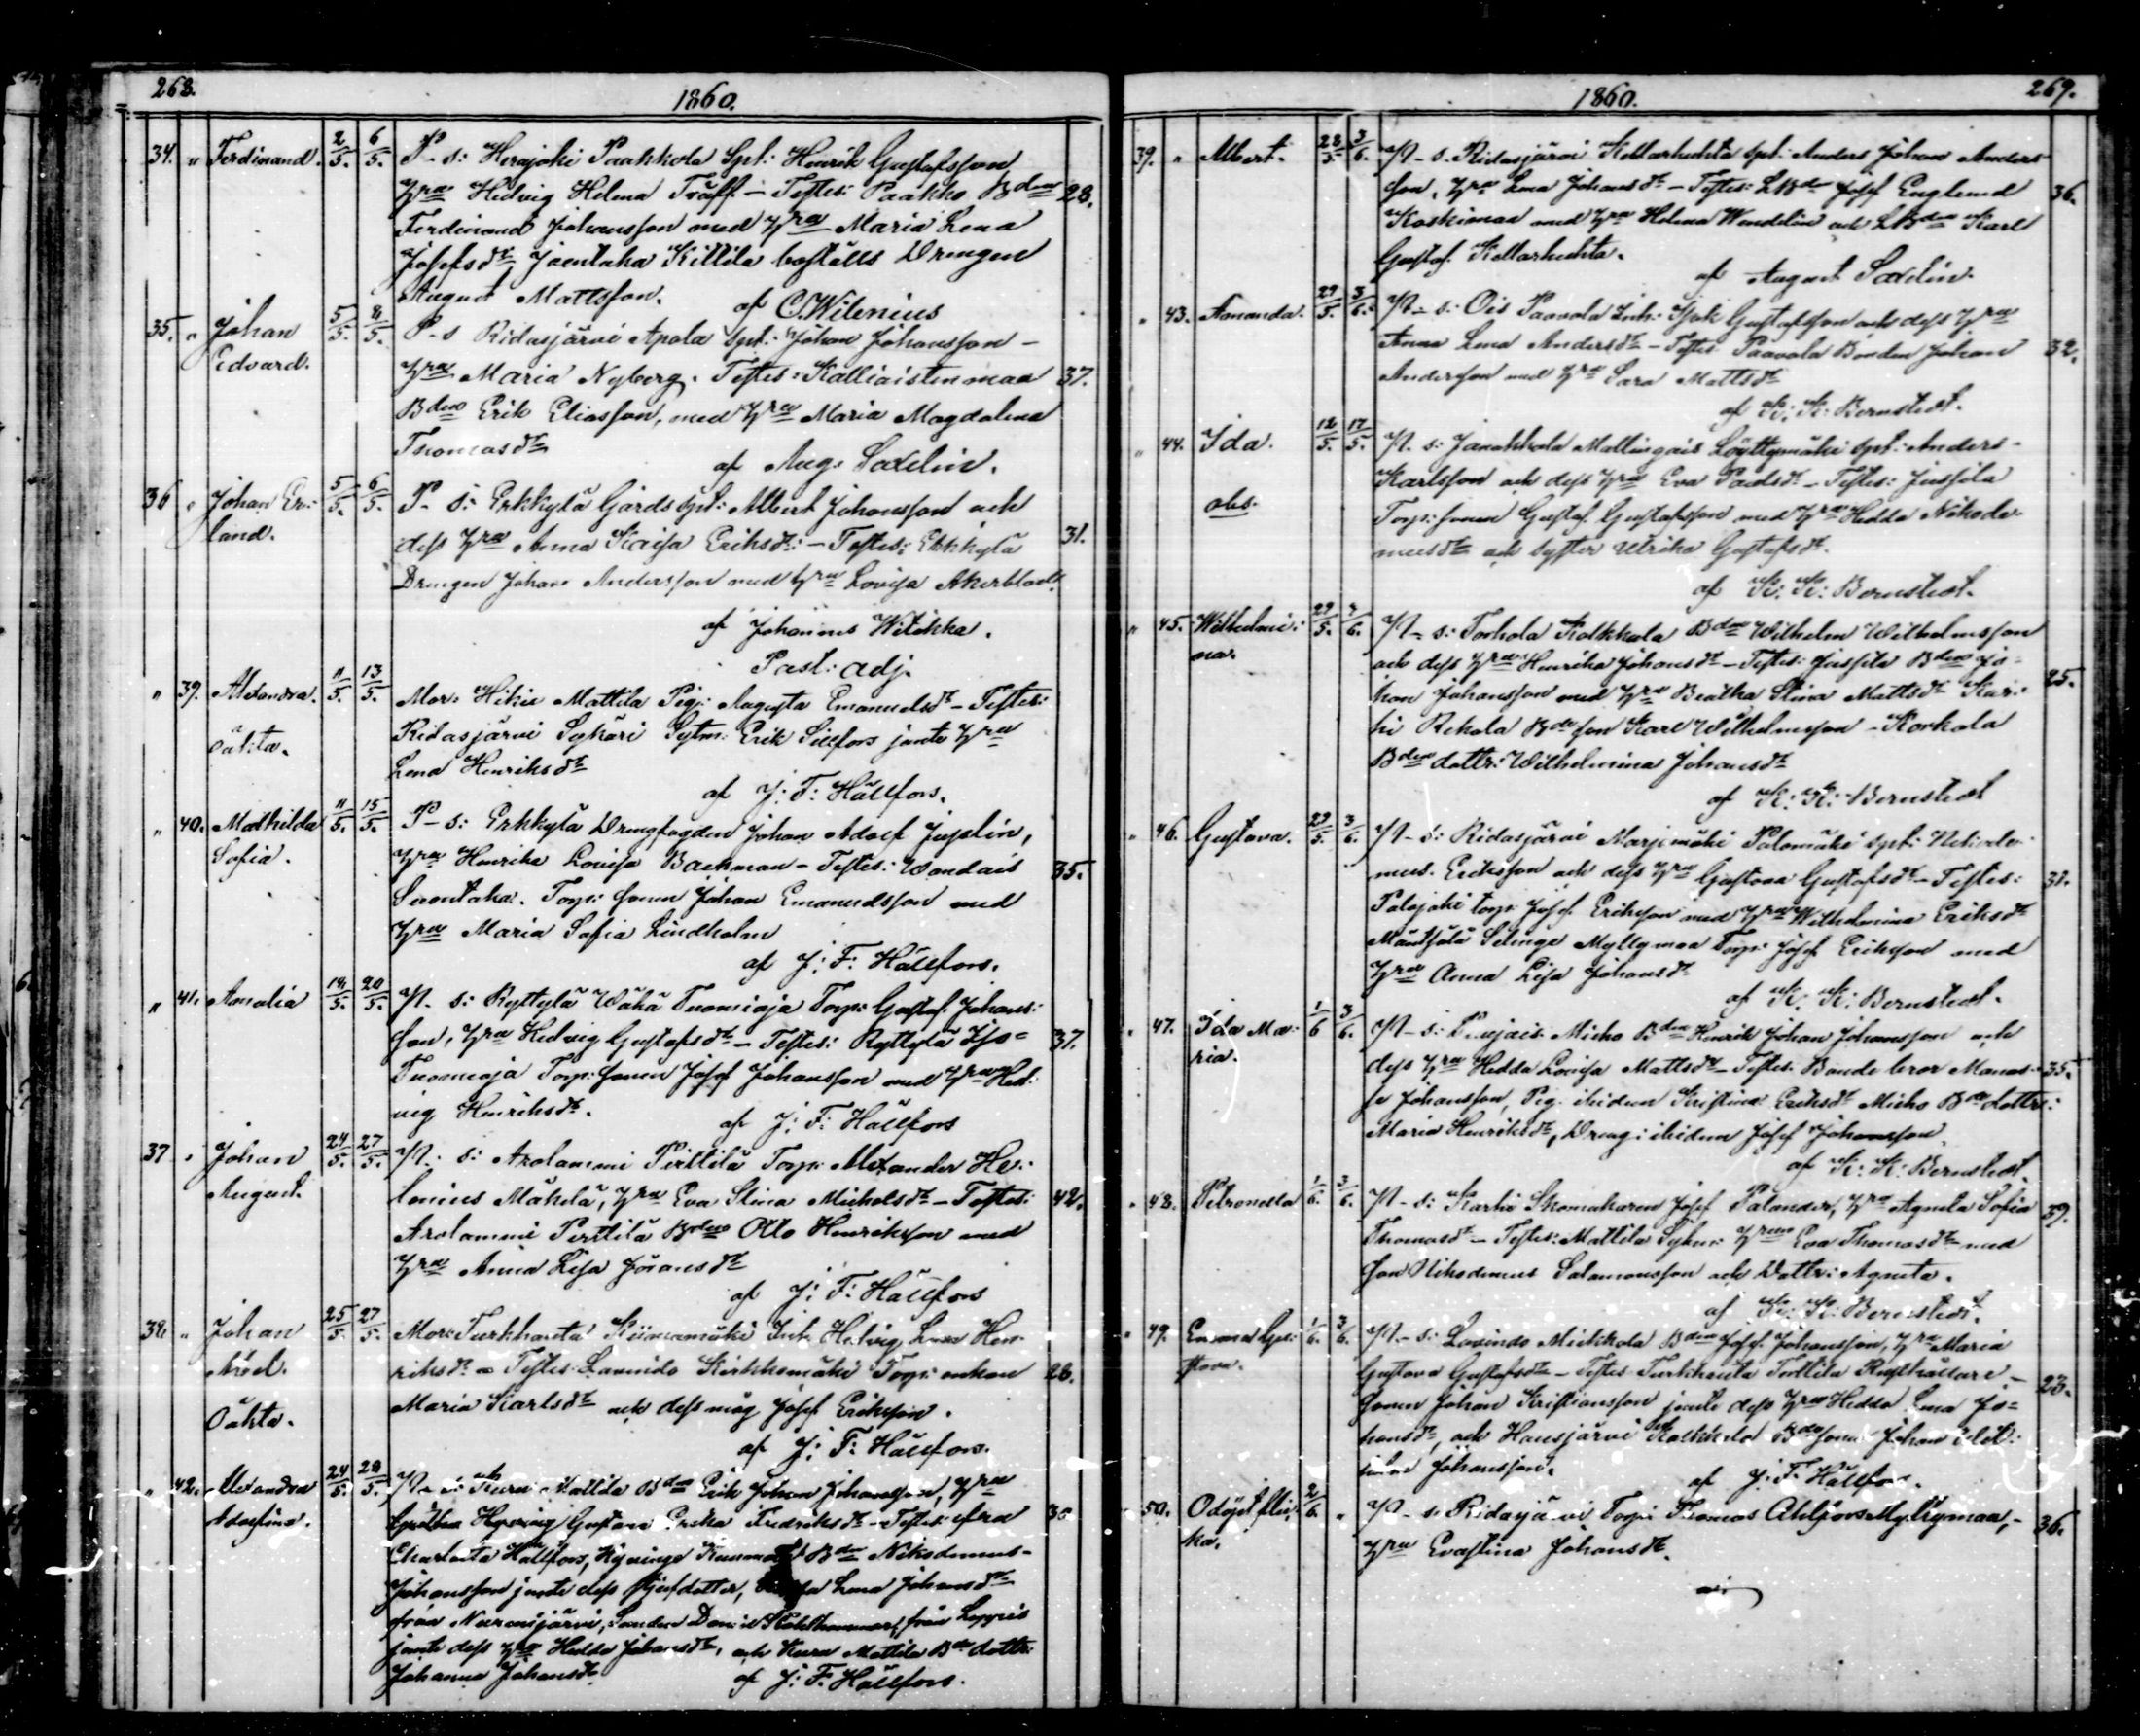 268.
1860.
34. " Ferdinand. 2/5. 6/5. P- s: Herajoki Paakkola Spt: Henrik Gustafsson
Hru Hedvig Helena Träff. - Testes: Paakko Bden 28.
Ferdinand Johansson med Hru Maria Lena
Josefsdtr, Jaentaka Kittila boställs Drengen
August Mattsson. af C. Wilenius
35. " Johan 5/5. 8/5. P- s Ridasjärvi Apola Spt: Johan Johansson -
Edvard. Hru Maria Nyberg. Testes: Kalliaistenmaa 37.
Bden Erik Eliasson, med Hru Maria Magdalena
Thomasdtr
af Aug. Saxelin.
36 " Johan Er- 5/5. 6/5. P- s: Erkkylä Gårds Spt: Albert Johansson och
land. dess Hru Anna Kaisa Eriksdtr: - Testes: Erkkylä 31.
Drengen Johan Andersson med hru Lovisa Åkerblad.
af Johannes Witikka.
Past: adj.
" 39. Alexandra. 11/5. 13/5. Mor: Hikiä Mattila Pig: Augusta Emanuelsdtr - Testes:
oäkta. Ridasjärvi Sykäri Sytm: Erik Sillfors jemte Hru
Lena Henriksdtr
af J: F: Hällfors.
" 40. Mathilda 11/5. 15/5. P- s: Erkkylä Drengfogden Johan Adolf Juselin,
Sofia. Hru Henrika Lovisa Backman - Testes: Wandais 35.
Seentaka. Torp: sonen Johan Emanuelsson med
Hru Maria Sofia Lindholm
af J: F: Hällfors.
" 41. Amalia 14/5. 20/5. P- s: Ryttylä Wähä Tuomioja Torp: Gustaf Johans-
son, Hru Hedvig Gustafsdtr - Testes: Ryttylä Iso- 37.
Tuomioja Torp: sonen Josef Johansson med Hru Hed-
vig Henriksdtr.
af J: F: Hällfors
37 " Johan 24/5. 27/5. P- s: Arolammi Pirttilä Torp: Alexander He-
August. lenius Mäkelä, Hru Eva Stina Michelsdtr - Testes: 42.
Arolammi Perttilä Bden Otto Henriksson med
Hru Anna Lisa Göransdtr
af J: F: Hällfors
38. " Johan 25/5. 27/5. Mor: Turkhauta Kiimamäki Inh. Hedvig Lena Hen-
Axel. riksdtr - Testes: Launido Kirkkomäki Torp: enkan 26.
Oäkta. Maria Karlsdtr och dess måg Josef Eriksson.
af J: F: Hällfors.
" 42. Alexandra 24/5. 28/5. P- s: Kuru Mattila Bden Erik Johan Johansson, Hru
Adolfina. Gustava Erika Fredriksdtr - Testes: Fru 30
Charlotta Hällfors, Hyvinge Bden Nikodemus-
Johansson jemte dess styfdotter, Lena Johansdtr
från Nurmijärvi, från Loppis
jemte dess Hru Hedda Johansdtr, och Kuru Mattila Bde dottr:
Johanna Johansdtr. af J: F: Hällfors.
1860.
269.
39. " Albert. 28/5 3/6. P- s. Ridasjärvi Kellarhuhta Spt: Anders Johan Anders-
son, Hru Lena Johansdtr - Testes: LBden Josef Englund 36.
Koskimaa med Hru Helena Wendelin och LBden Karl
Gustaf Kellarhuhta.
af August Saxelin.
" 43. Amanda. 29/5. 3/6. P- s: Ois Paavola Inh: Isak Gustafsson och dess Hru
Anna Lena Andersdtr - Testes Paavola Bonden Johan 32.
Andersson med Hru Sara Mattsdtr
af K: K: Bernstedt.
" 44. Ida. 12/5. 17/5. P- s: Janakkala Mallinpais Löyttymäki Spt: Anders
obs. Karlsson och dess Hru Eva Paulsdtr - Testes: Jussila
Torp: sonen Gustaf Gustafsson med Hru Hedda Nikode-
musdtr och syster Ulrika Gustafsdtr.
af K: K: Bernstedt.
" 45. Wilhelmi- 29/5. /6. P- s: Torhola Kolkkala Bden Wilhelm Wilhelmsson
na. och dess Hru Henrika Johansdtr - Testes: Jussila Bden Jo-
han Johansson med Hru Beatha Stina Mattsdtr Kar- 25.
hi Rekola Bde son Karl Wilhelmsson - Korkola
Bden dottr: Wilhelmina Johansdtr
af K: K: Bernstedt
" 46. Gustava. 29/5. 3/6. P- s: Ridasjärvi Marjomäki Palomäki Spt: Nikode-
mus Eriksson och dess Hru Gustava Gustafsdtr - Testes: 31.
Palojoki torp: Josef Eriksson med Hru Wilhelmina Eriksdtr
Mäntsälä Sälinge Myllymaa Torp: Josef Eriksson med
Hru Anna Lisa Johansdtr
af K: K: Bernstedt.
" 47. Ida Ma- 1/6 3/6. P- s: Puujais Micko Bden Henrik Johan Johansson och
ria. dess Hru Hedda Lovisa Mattsdtr - Testes: Bonde bror Manas- 35.
se Johansson, Pig. ibidem Kristina Eriksdtr Micko Bde dottr:
Maria Henriksdtr, Dreng: ibidem Josef Johansson.
af K: K: Bernstedt.
" 48. Petronella 1/6. 3/6. P- s: Karhi Skomakaren Josef Palander, Hru Agneta Sofia 39.
Thomasdtr - Testes: Mattila Sytm: Hrun Eva Thomasdtr med
son Nikodemus Salamonsson och Dottr: Agneta.
af K: K: Bernstedt.
" 49. Emma Gu- 1/6. 3/6. P- s: Launido Mickkola Bden Josef Johansson, Hru Maria
stava. Gustava Gustafsdtr - Testes Turkhauta Tottila Rusthållare- 23.
sonen Johan Kristiansson jemte dess Hru Hedda Lena Jo-
hansdtr, och Hausjärvi Bde sonen Johan
Johansson.
af J: F: Hällfors.
50. Odöpt flic- 2/6. " P- s: Ridasjärvi Torp: Thomas Ahlfors Myllymaa, - 36.
ka. Hru Evastina Johansdtr.